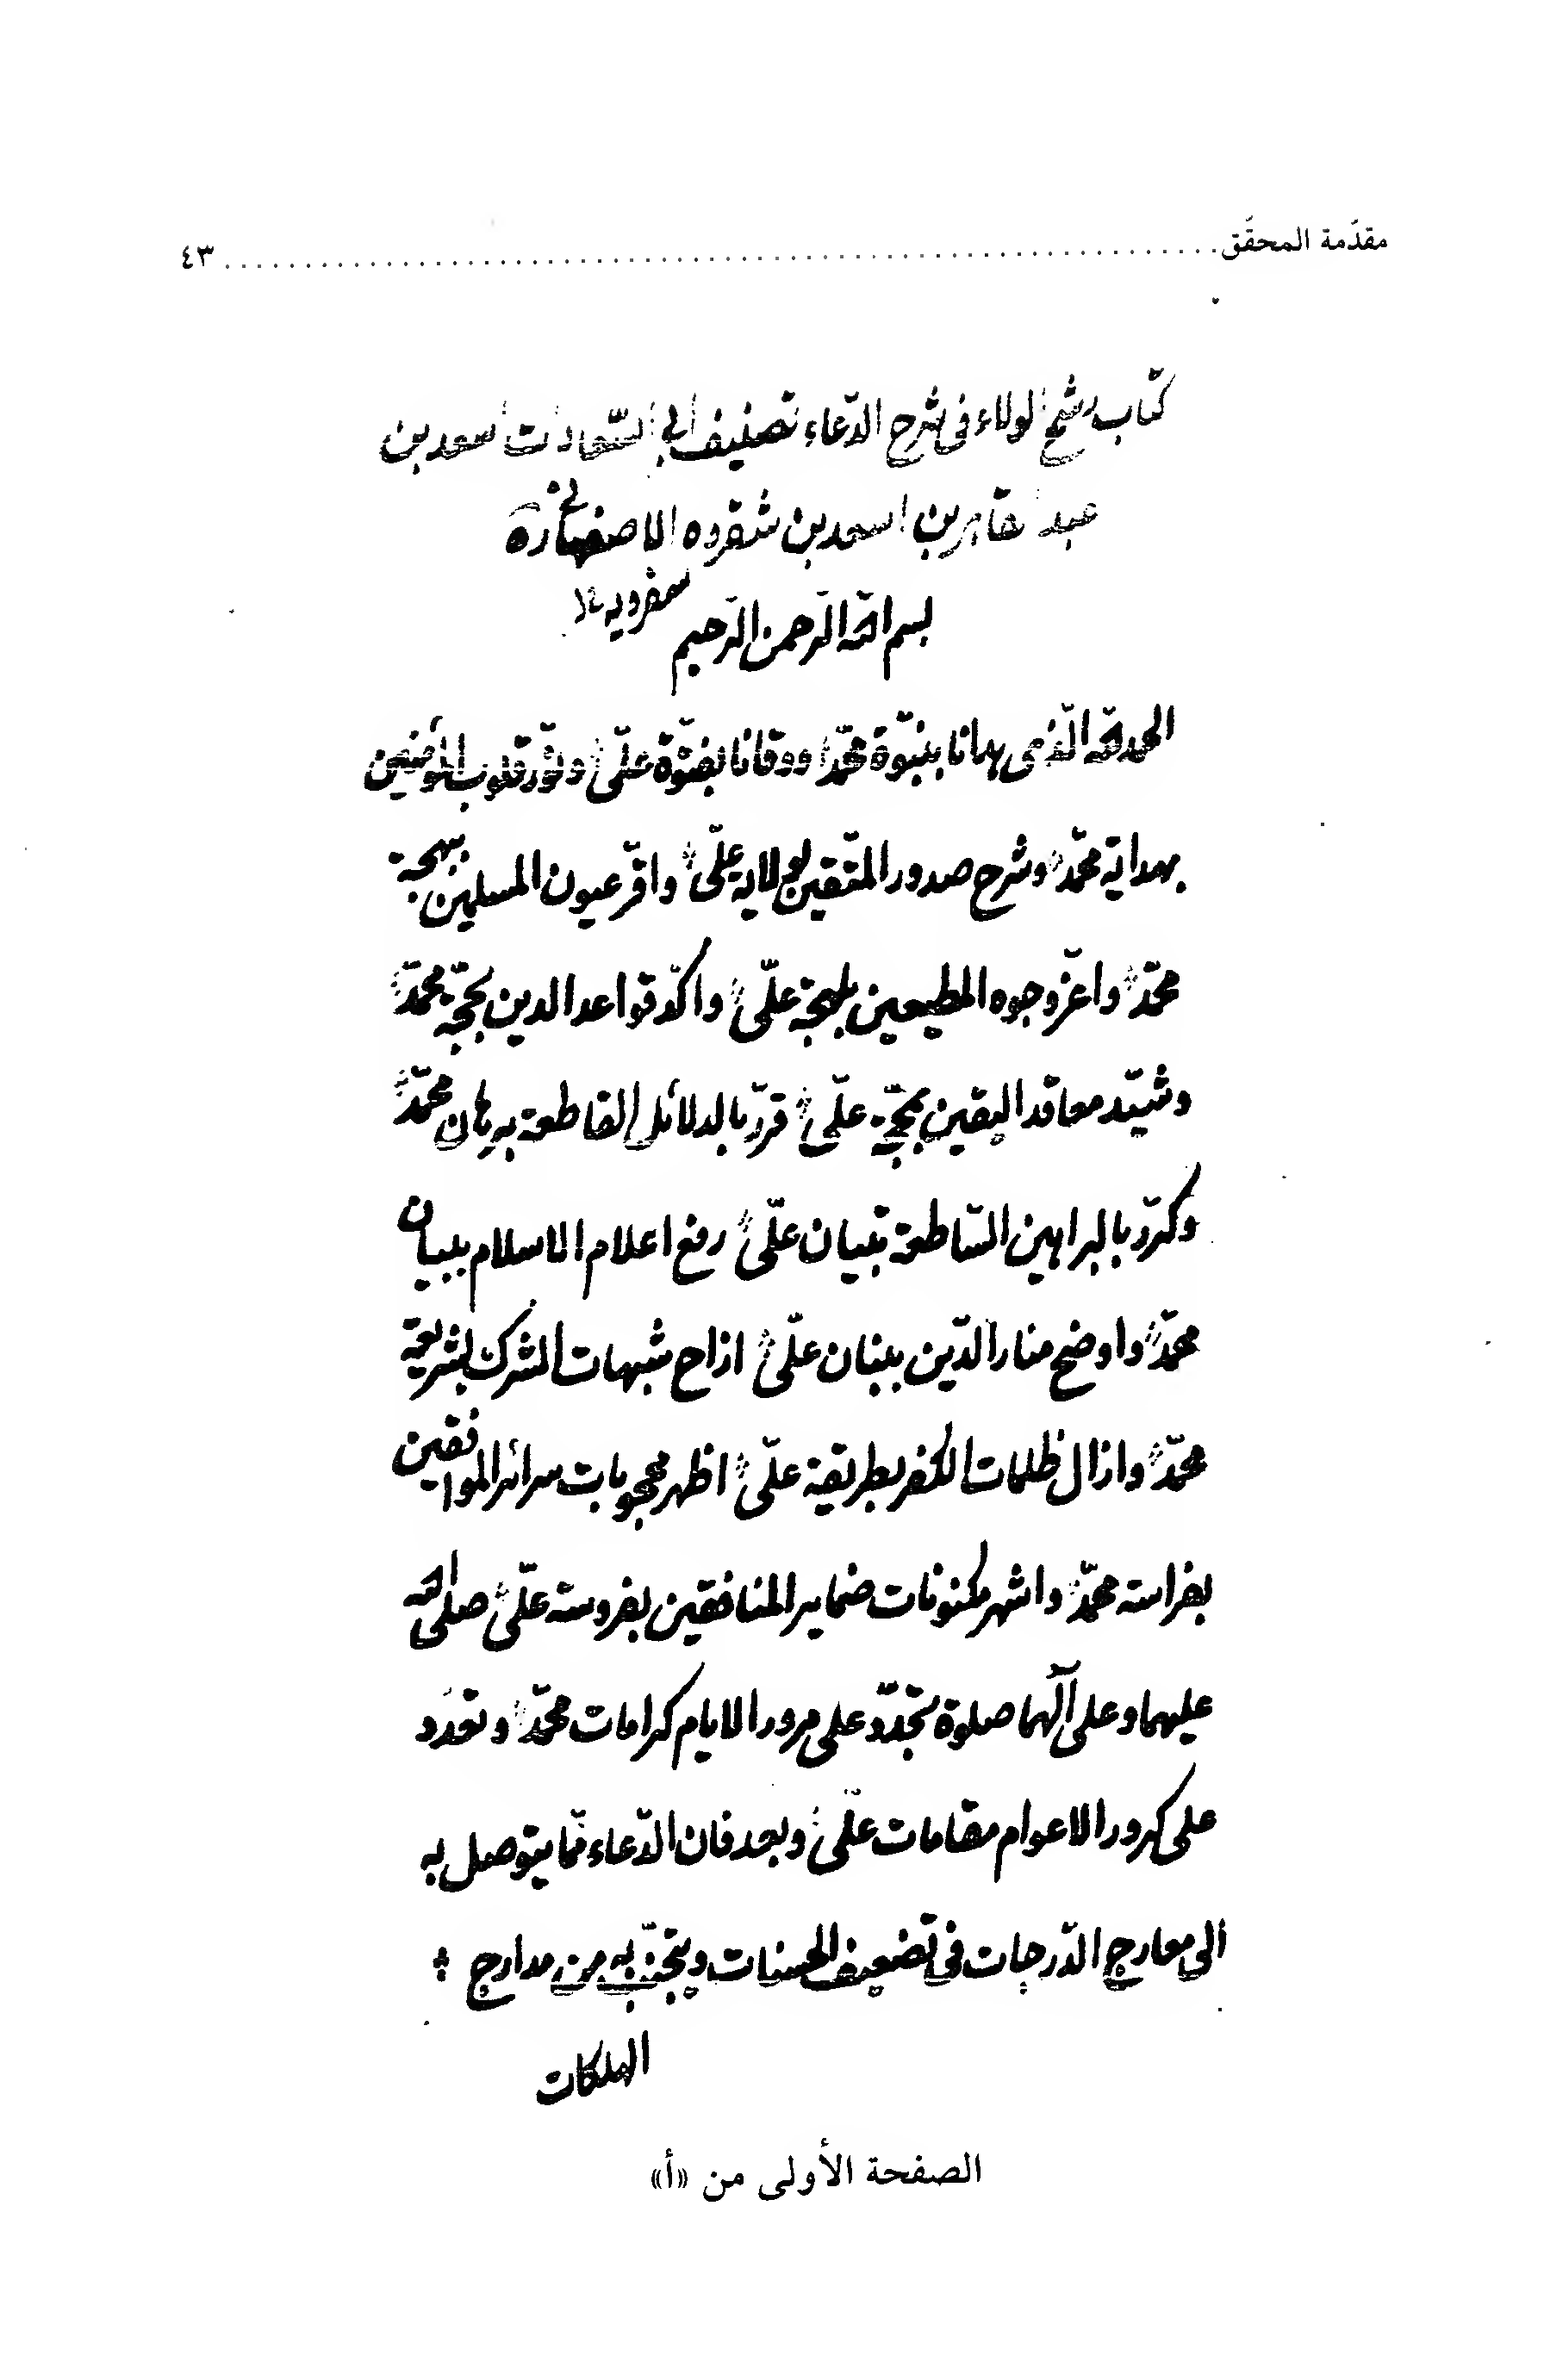 مقدّمة المحقّق ........................................................ ٤٣
كتاب رشح الولاء فى شرح الدّعاء تصنيف ابى السّعادات اسعد بن
عبد القاهر بن اسعد بن شفروه الاصفهانى
بسم الله الرّحمن الرّحيم
الحمد لله الّذى هدانا بنبوّة محمّد ووقانا بفتوّة علىّ ونوّر قلوب المؤمنين
بهداية محمّد وشرح صدور المتّقين بولاية علىّ واقرّ عيون المسلمين ببهجة
محمّد واعزّ وجوه المطيعين بلهجة علىّ واكّد قواعد الدين بحجّة محمّد
وشيّد معاقد اليقين بمحجّة علىّ قرّر بالدلائل القاطعة برهان محمّد
وكرّر بالبراهين السّاطعة تبيان علىّ رفع اعلام الاسلام ببيان
محمّد واوضح منار الدّين ببنان علىّ ازاح شبهات الشرك بشريعة
محمّد وازال ظلمات الكفر بطريقة علىّ اظهر محجوبات سرائر الموافقين
بفراسة محمّد واشهر مكنونات ضماير المنافقين بفروسة علىّ صلى الله
عليهما وعلى آلهما صلوة تتجدّد على مرور الايام كرامات محمّد وتعدّد
على كرور الاعوام مقامات علىّ وبعد فان الدّعاء ممّا يتوصل به
الى معارج الدّرجات فى تضعيف الحسنات ويتجنّب به من مدارج
الهلكات
الصفحة الأولى من «أ»